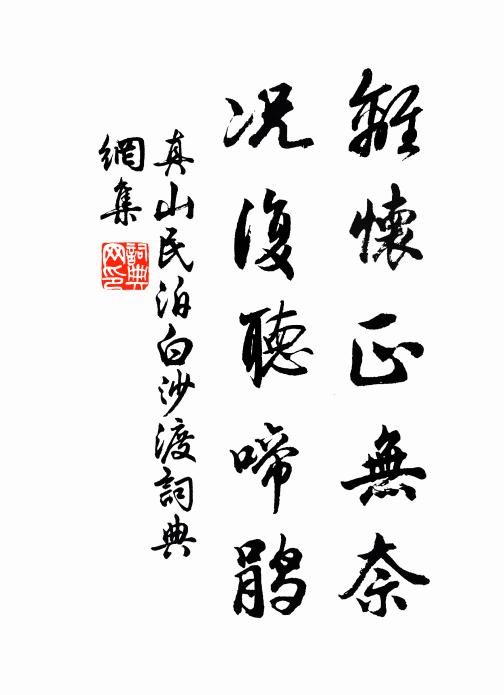 離懷正無奈
况復聽啼鵑
真山民泊白沙渡詞典
網集
詞典網印